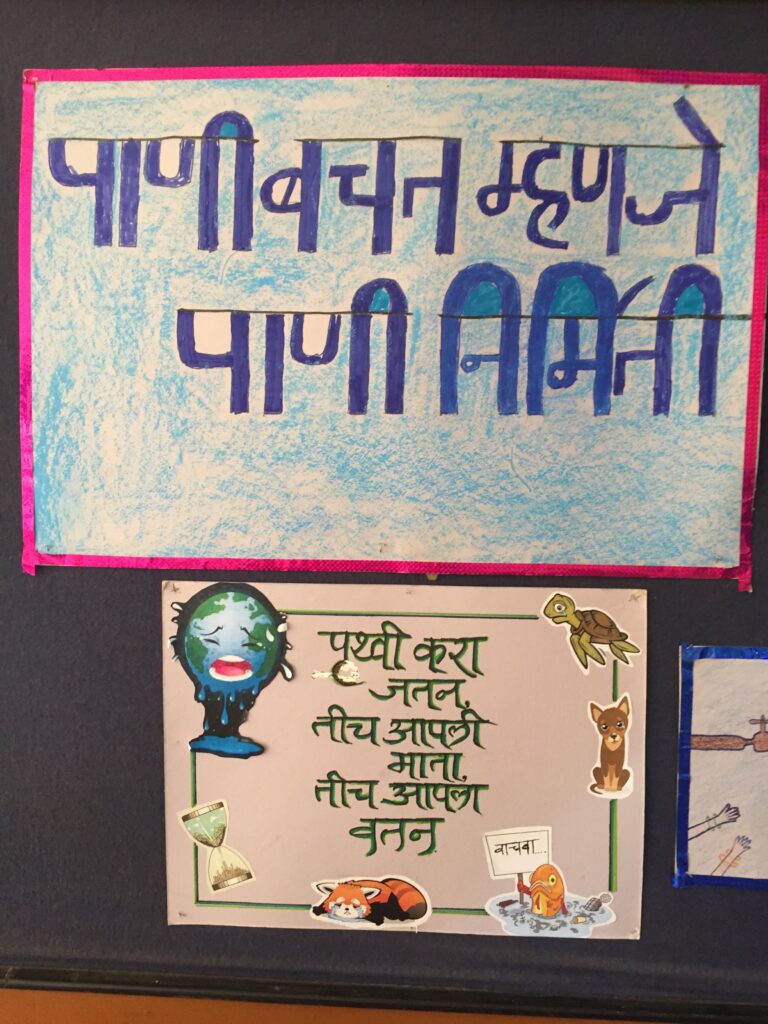 पाणी बचत म्हणजे
पाणी निर्मिती
पृथ्वी करा
जतन,
तीच आपली
माता,
तीच आपला
वतन
वाचवा....